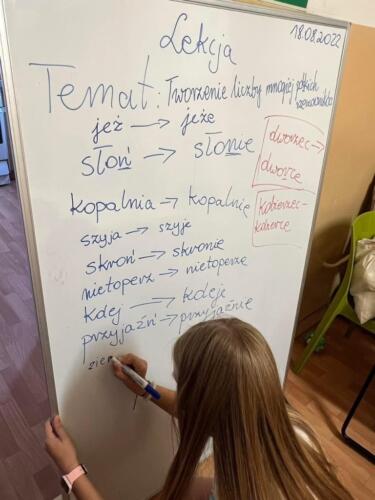 Lekcja
18.08.2022
Temat: Tworzenie liczby mnogiej polskich
rzeczowników
jeż → jeże
słoń → słonie
dworzec →
dworce
kopalnia → kopalnie
kobierzec -
kobierce
szyja → szyje
skroń → skronie
nietoperz → nietoperze
kolej → koleje
przyjaźń → przyjaźnie